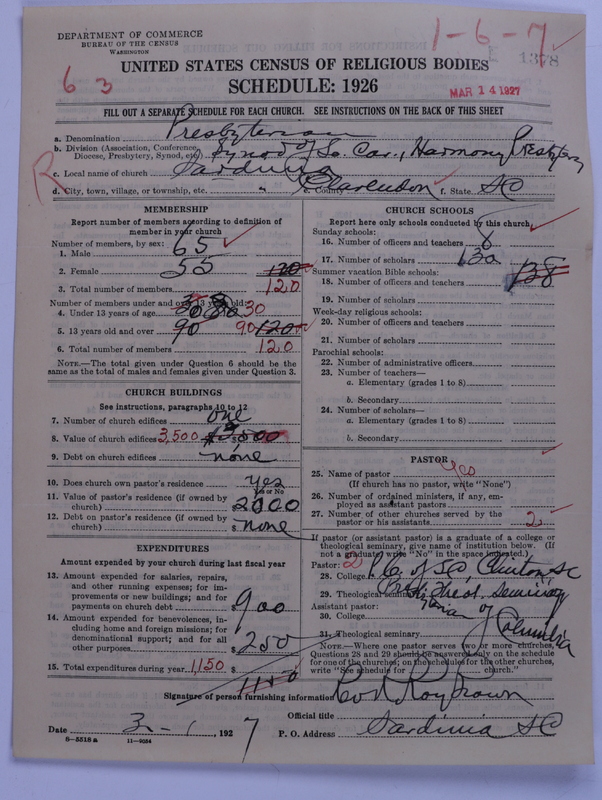 DEPARTMENT OF COMMERCE
BUREAU OF THE CENSUS
WASHINGTON
1-6-7
1378
63
UNITED STATES CENSUS OF RELIGIOUS BODIES
SCHEDULE: 1926
MAR 14 1927
FILL OUT A SEPARATE SCHEDULE FOR EACH CHURCH. SEE INSTRUCTIONS ON THE BACK OF THIS SHEET
a. Denomination Presbyterian
b. Division (Association, Conference, Diocese, Presbytery, Synod, etc.) Synod of So. Car., Harmony Presbytery
R
c. Local name of church Sardinia
d. City, town, village, or township, etc. " e. County Clarendon f. State SC
MEMBERSHIP
Report number of members according to definition of member in your church
Number of members, by sex:
1. Male 65
2. Female 55 120
3. Total number of members 120
Number of members under and over 13 years old:
4. Under 13 years of age 30 30
5. 13 years old and over 90 90 120
6. Total number of members 120
NOTE.—The total given under Question 6 should be the same as the total of males and females given under Question 3.
CHURCH BUILDINGS
See instructions, paragraphs 10 to 12
7. Number of church edifices one
8. Value of church edifices 3,500 $3500
9. Debt on church edifices none
10. Does church own pastor's residence yes
Yes or No
11. Value of pastor's residence (if owned by church) $2000
12. Debt on pastor's residence (if owned by church) $none
EXPENDITURES
Amount expended by your church during last fiscal year
13. Amount expended for salaries, repairs, and other running expenses; for improvements or new buildings; and for payments on church debt $900
14. Amount expended for benevolences, including home and foreign missions; for denominational support; and for all other purposes $250
15. Total expenditures during year 1150 $1150
CHURCH SCHOOLS
Report here only schools conducted by this church
Sunday schools:
16. Number of officers and teachers 8
17. Number of scholars 130
138
Summer vacation Bible schools:
18. Number of officers and teachers
19. Number of scholars
Week-day religious schools:
20. Number of officers and teachers
21. Number of scholars
Parochial schools:
22. Number of administrative officers
23. Number of teachers—
a. Elementary (grades 1 to 8)
b. Secondary
24. Number of scholars—
a. Elementary (grades 1 to 8)
b. Secondary
PASTOR
25. Name of pastor Yes
(If church has no pastor, write "None")
26. Number of ordained ministers, if any, employed as assistant pastors
27. Number of other churches served by the pastor or his assistants 2
If pastor (or assistant pastor) is a graduate of a college or theological seminary, give name of institution below. (If not a graduate write "No" in the space indicated.)
Pastor:
28. College P.C. of SC, Clinton, SC
29. Theological seminary Theol. Seminary of Columbia
Assistant pastor:
30. College
31. Theological seminary
NOTE.—Where one pastor serves two or more churches, Questions 28 and 29 should be answered only on the schedule for one of the churches; on the schedules for the other churches, write "See schedule for church."
Signature of person furnishing information Roy Brown
Official title
Date 3-1 1927
P. O. Address Sardinia SC
8-5518 a 11-9034